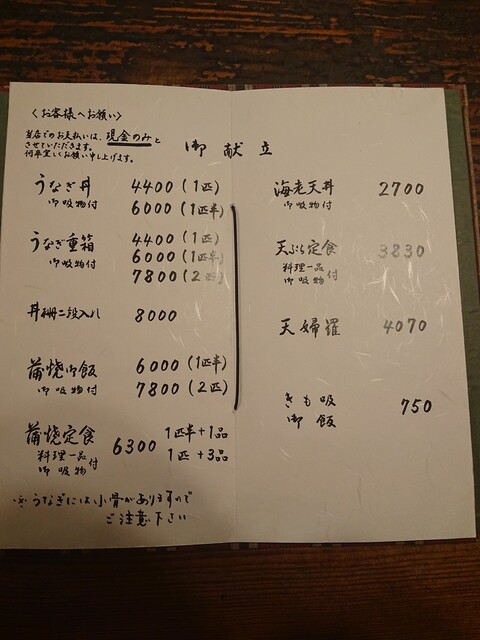 〈お客様へお願い〉
当店でのお支払いは、現金のみと
させていただきます。
何卒宜しくお願い申し上げます。
御献立
うなぎ丼 4400(1匹)
御吸物付 6000(1匹半)
うなぎ重箱 4400(1匹)
御吸物付 6000(1匹半)
7800(2匹)
丼櫃二段入れ 8000
蒲焼御飯 6000(1匹半)
御吸物付 7800(2匹)
蒲焼定食 6300 1匹半+1品
料理一品 御吸物 付 1匹+3品
※うなぎには小骨がありますので
ご注意下さい
海老天丼 2700
御吸物付
天ぷら定食 3830
料理一品 御吸物 付
天婦羅 4070
きも吸 750
御飯